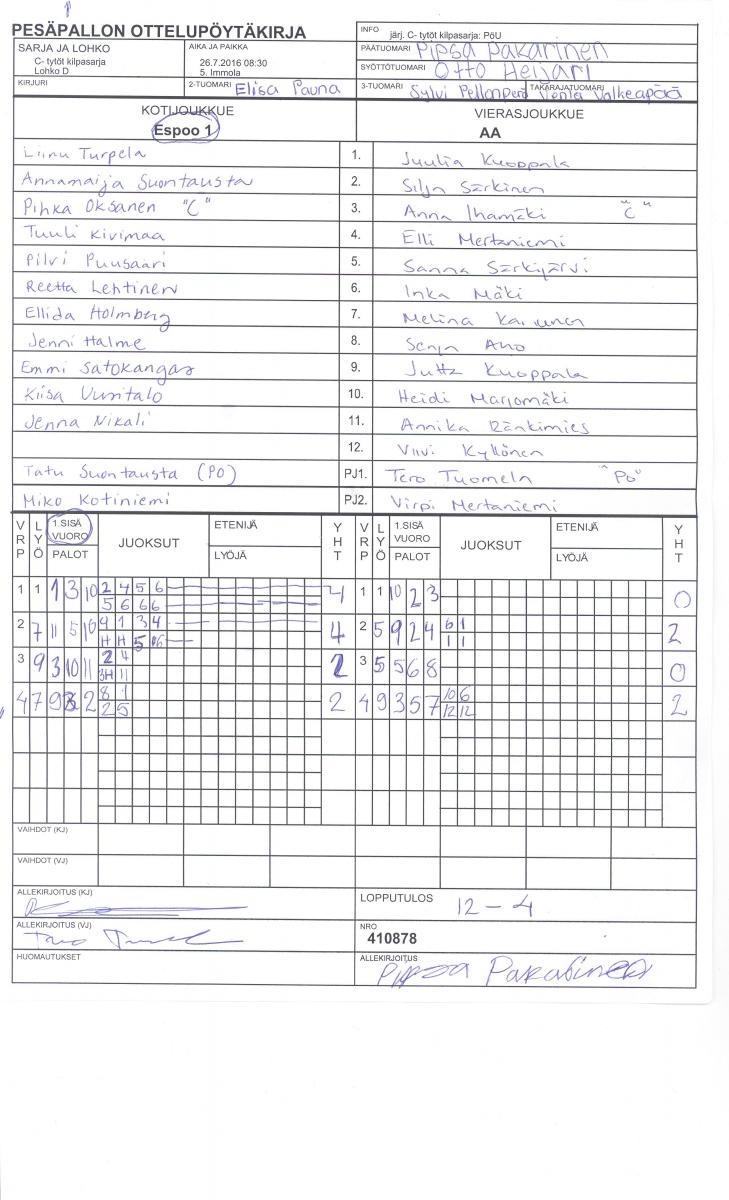 PESÄPALLON OTTELUPÖYTÄKIRJA
INFO järj. C- tytöt kilpasarja: PöU
SARJA JA LOHKO
C- tytöt kilpasarja
Lohko D
AIKA JA PAIKKA
26.7.2016 08:30
5. Immola
PÄÄTUOMARI Pipsa Pakarinen
SYÖTTÖTUOMARI Otto Heijari
KIRJURI
2-TUOMARI Elisa Pauna
3-TUOMARI Sylvi Pellonperä
TAKARAJATUOMARI Venla Valkeapää
KOTIJOUKKUE
Espoo 1
VIERASJOUKKUE
AA
Liinu Turpela 1. Juulia Kuoppala
Annamaija Suontausta 2. Silja Särkinen
Pihka Oksanen "C" 3. Anna Ihamäki "C"
Tuuli Kivimaa 4. Elli Mertaniemi
Pilvi Puusaari 5. Sanna Särkijärvi
Reetta Lehtinen 6. Inka Mäki
Ellida Holmberg 7. Melina
Jenni Halme 8. Senja Aho
Emmi Satokangas 9. Jutta Kuoppala
Kiisa Uusitalo 10. Heidi Marjomäki
Jenna Nikali 11. Annika Ränkimies
12. Viivi Kyllönen
Tatu Suontausta (PO) PJ1. Tero Tuomela "PO"
Miko Kotiniemi PJ2. Virpi Mertaniemi
VRP LYÖ 1.SISÄ VUORO PALOT JUOKSUT ETENIJÄ LYÖJÄ YHT VRP LYÖ 1.SISÄ VUORO PALOT JUOKSUT ETENIJÄ LYÖJÄ YHT
1 1 1 3 10 2 4 5 6 4 1 1 10 2 3 0
5 6 6 6
2 7 11 5 10 9 1 3 4 4 2 5 9 2 4 6 1 2
H H 5 6 1 1
3 9 3 10 11 2 4 2 3 5 5 6 8 0
3H 11
4 7 9 2 8 1 2 4 9 3 5 7 10 6 2
2 5 12 12
VAIHDOT (KJ)
VAIHDOT (VJ)
ALLEKIRJOITUS (KJ)
LOPPUTULOS 12 - 4
ALLEKIRJOITUS (VJ)
NRO
410878
HUOMAUTUKSET
ALLEKIRJOITUS Pipsa Pakarinen